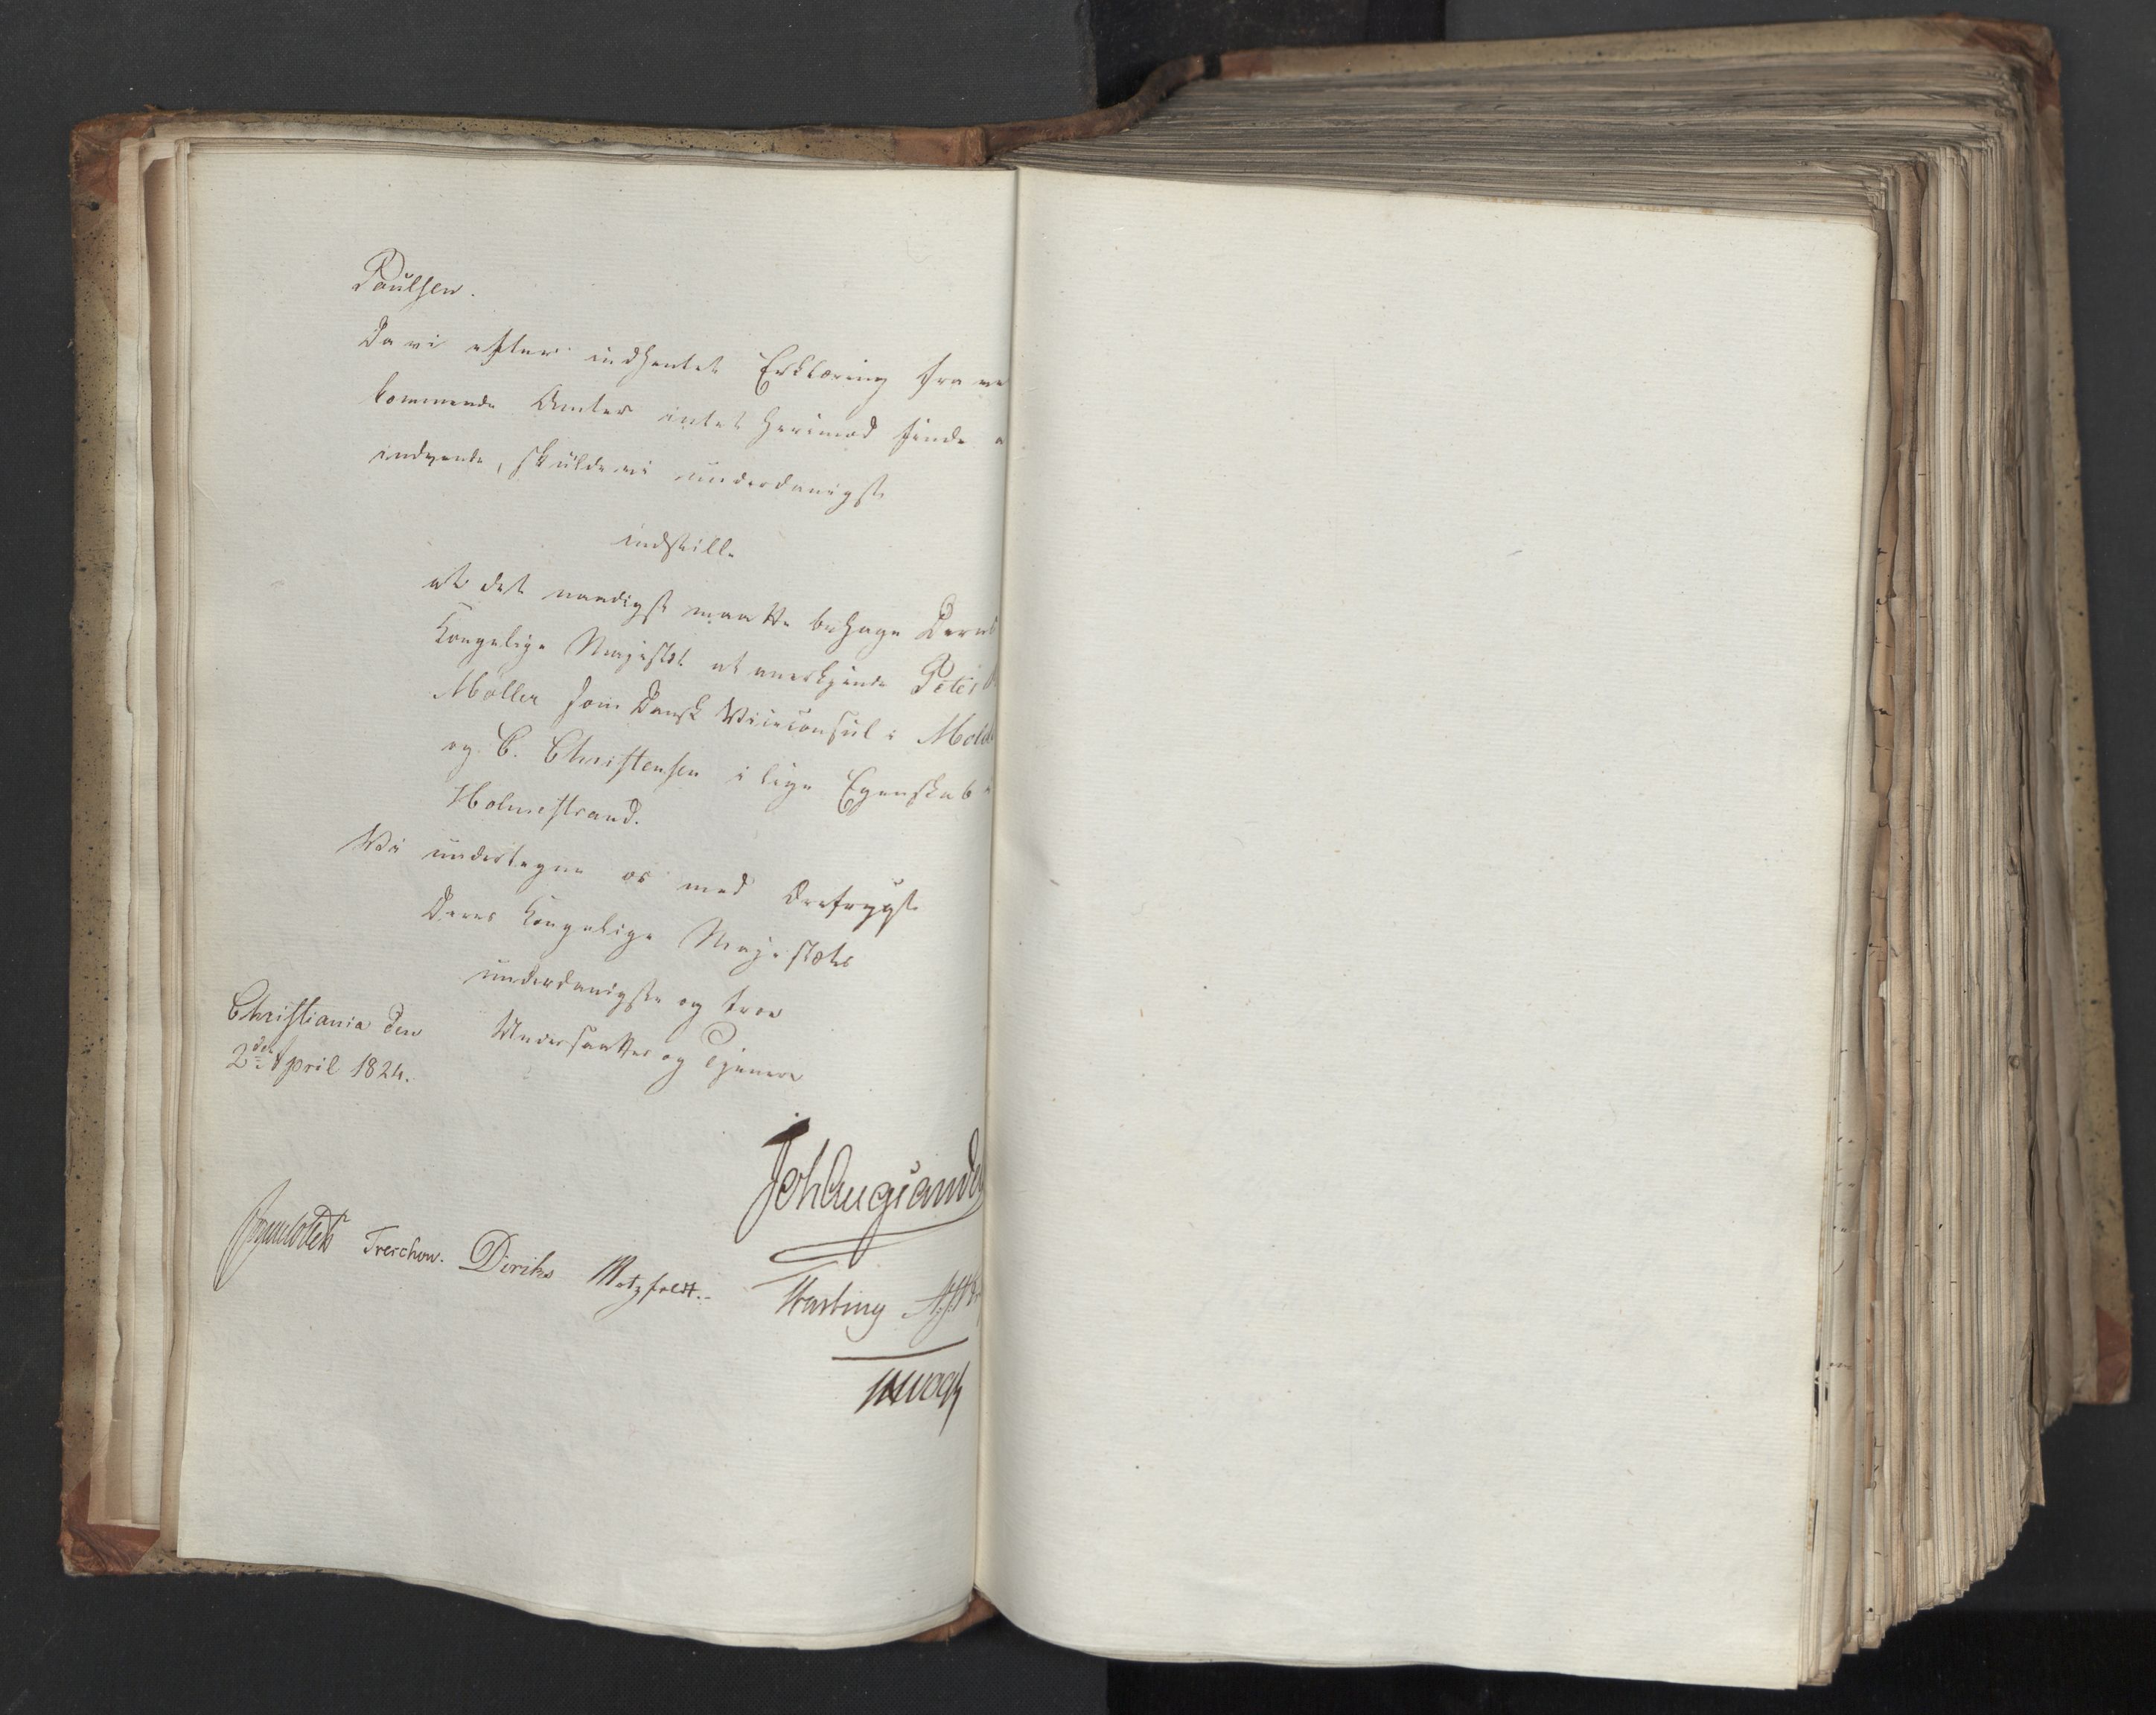 Poulsen.
Da vi efter indhentet Erklæring fra ved
kommende Amter intet herimod finde a
indvende, skulde vi underdanigst
indstille
at det naadigst maatte behage Deres
Kongelige Majestet at anerkjende Peter
Möller som Dansk Viceconsul i Molde
og C. Christensen i lige Egenskab i
Holmestrand.
Vi undertegne os med Ærefrygt
Deres Kongelige Majestæts
underdanigste og troe
Undersaatter og Tjenere
Christiania den
2den April 1824.
Joh Aug Sandels
Sommerhielm Treschow. Diriks Motzfeldt. Fasting